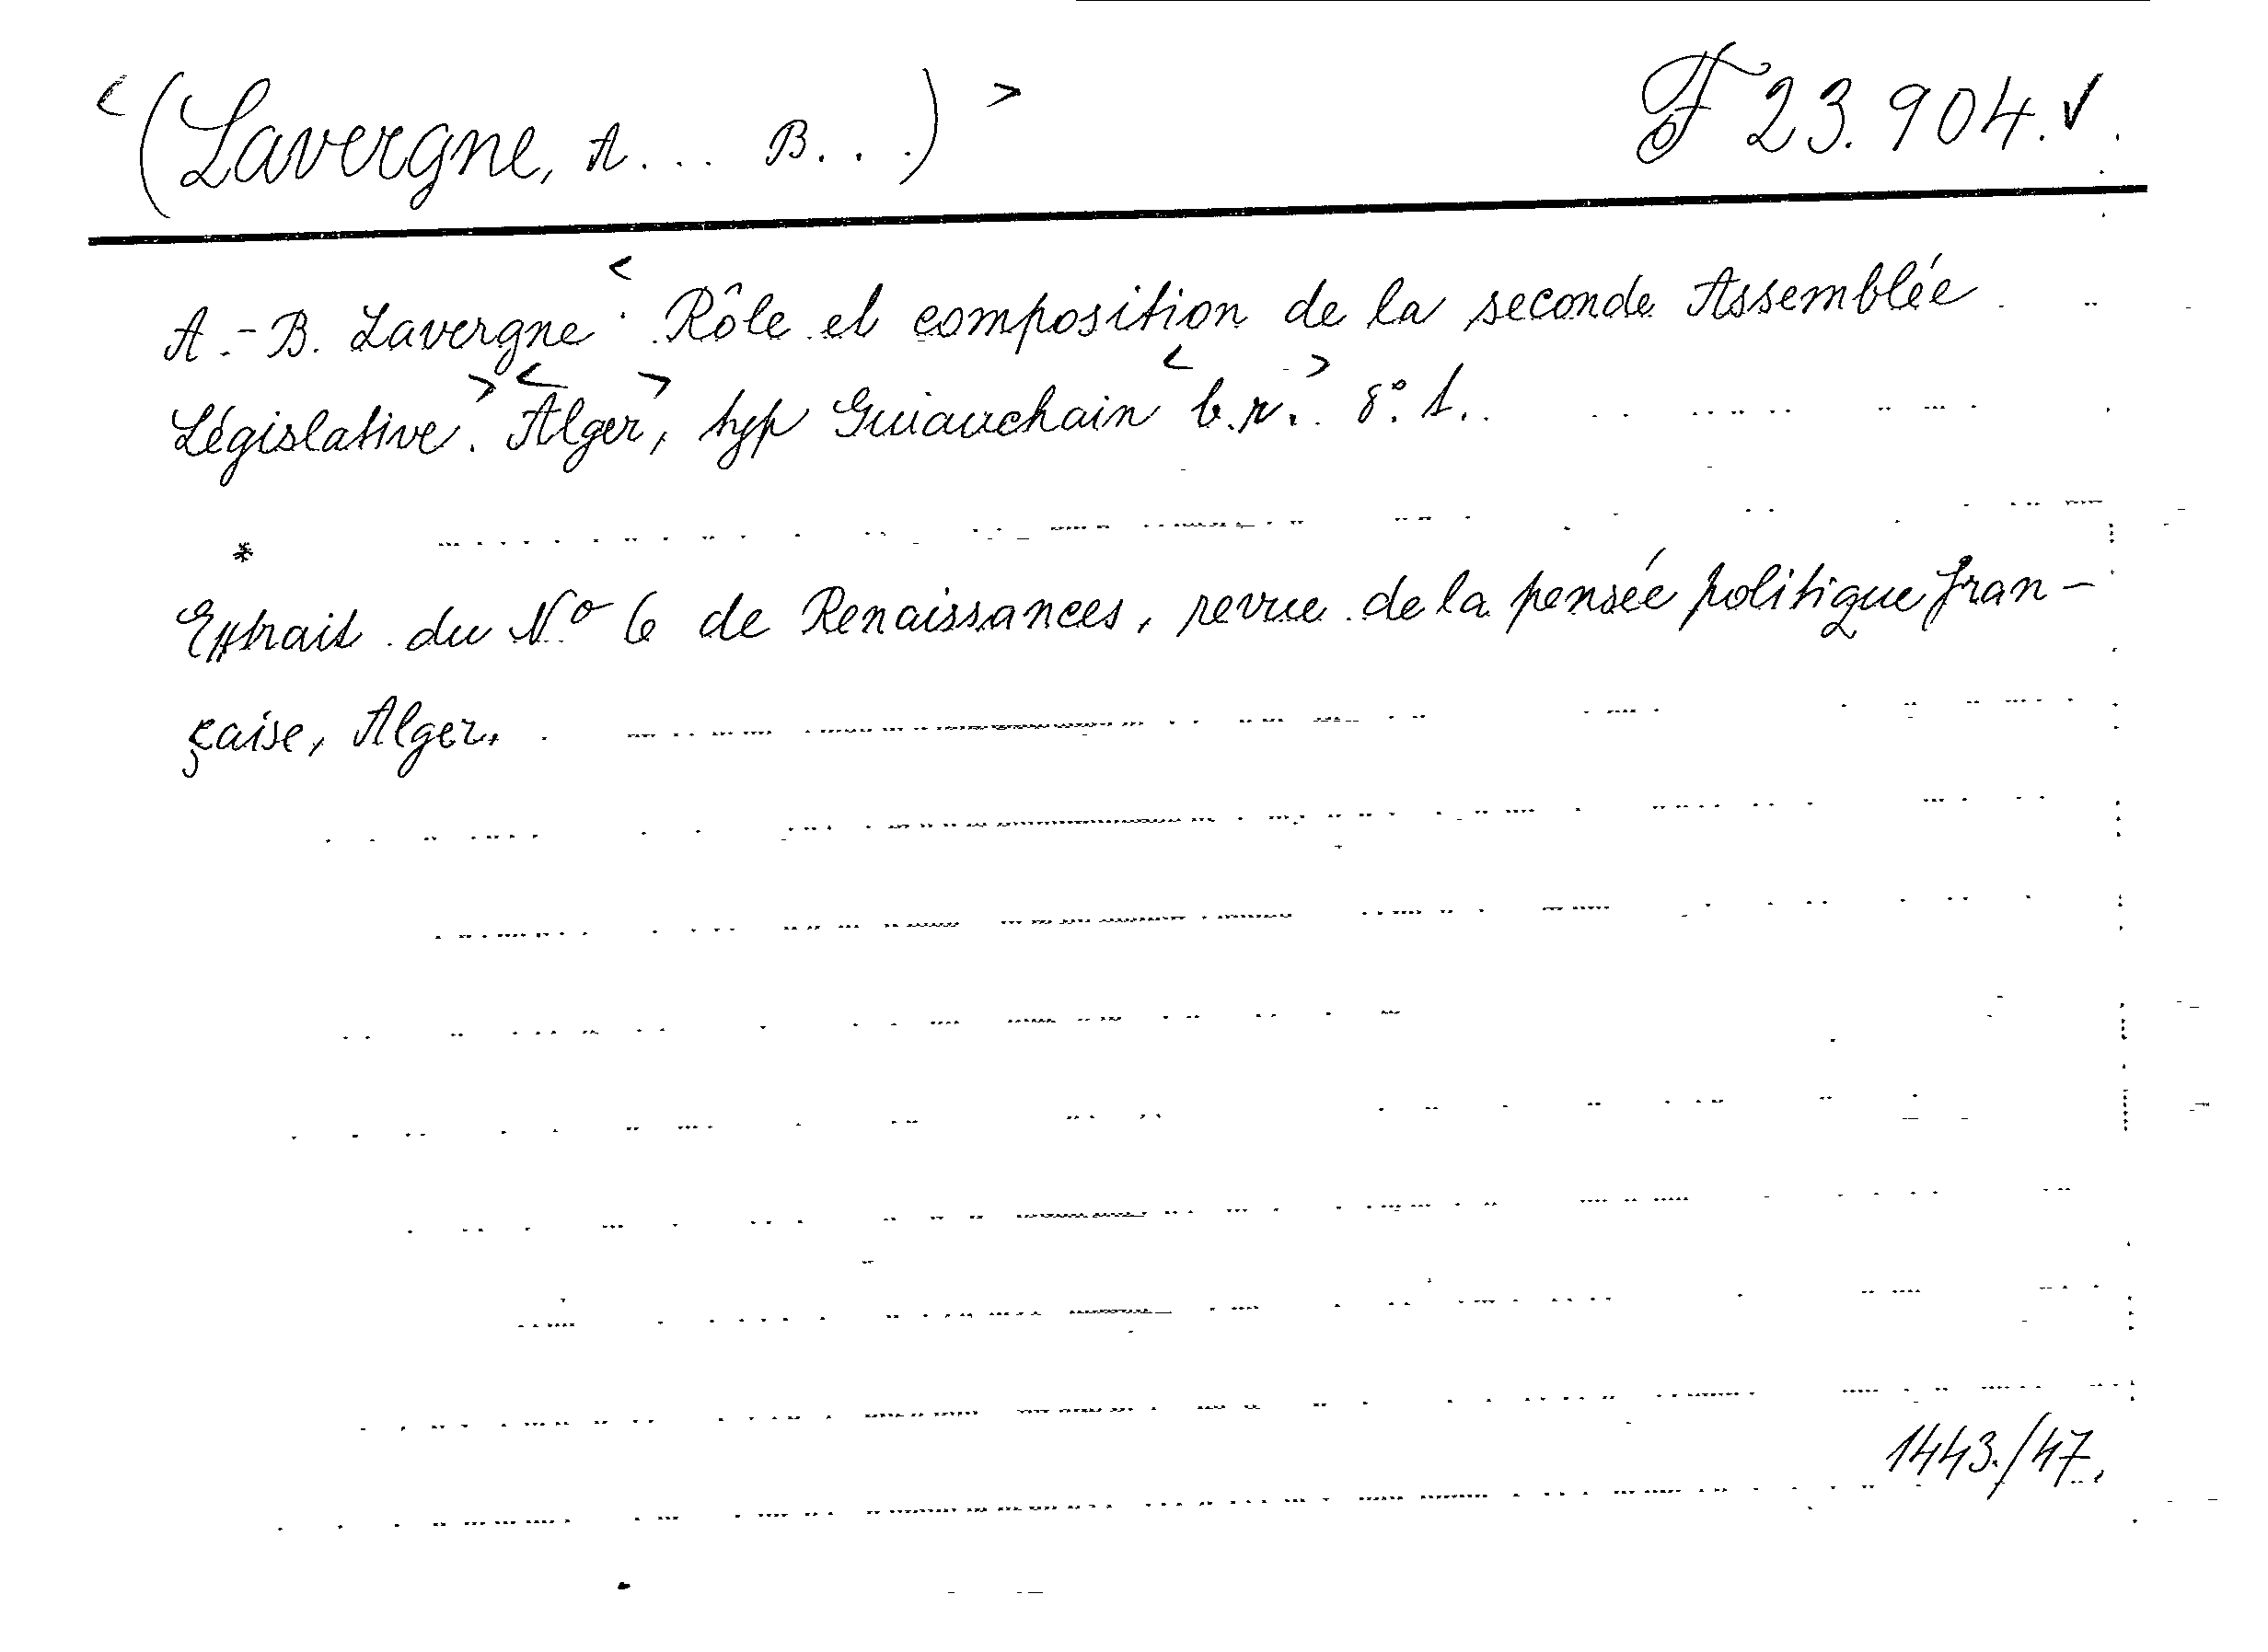 <(Lavergne, A... B...)> F 23.904.✓.
A.-B. Lavergne. <Rôle et composition de la seconde Assemblée
Législative.> <Alger>, typ Guiauchain <b.r.> 8° 1.
*
Extrait du No 6 de Renaissances, revue de la pensée politique fran-
çaise, Alger.
1443./47.